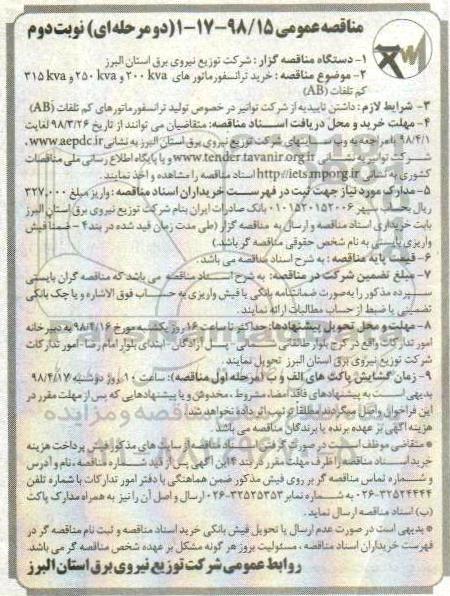 مناقصه عمومی ۹۸/۱۵-۱۷-۱(دو مرحله‌ای) نوبت دوم
۱- دستگاه مناقصه گزار : شرکت توزیع نیروی برق استان البرز
۲- موضوع مناقصه : خرید ترانسفورماتور های ۲۰۰ kva و ۲۵۰ kva و ۳۱۵ kva
کم تلفات (AB)
۳- شرایط لازم : داشتن تاییدیه از شرکت توانیر در خصوص تولید ترانسفورماتور های کم تلفات (AB)
۴- مهلت خرید و محل دریافت اسناد مناقصه: متقاضیان می توانند از تاریخ ۹۸/۳/۲۶ لغایت
۹۸/۴/۱ بامراجعه به وب سایتهای شرکت توزیع نیروی برق استان البرز به نشانی www.aepdc.ir،
شرکت توانیر به نشانی www.tender.tavanir.org.ir و یا پایگاه اطلاع رسانی ملی مناقصات
کشوری به نشانی http://iets.mporg.ir اسناد مناقصه را مشاهده و اخذ نمایند.
۵- مدارک مورد نیاز جهت ثبت در فهرست خریداران اسناد مناقصه : واریز مبلغ ۳۲۷,۰۰۰
ریال بحساب سپهر ۰۱۰۱۵۲۰۱۵۲۰۰۶ بانک صادرات ایران بنام شرکت توزیع نیروی برق استان البرز
بابت خریداری اسناد مناقصه و ارسال به مناقصه گزار (طی مدت زمان قید شده در بند ۴ - ضمنا فیش
واریزی بایستی به نام شخص حقوقی مناقصه گر باشد.)
۶- قیمت پایه مناقصه : به شرح اسناد مناقصه می باشد.
۷- مبلغ تضمین شرکت در مناقصه: به شرح اسناد مناقصه می باشد که مناقصه گران بایستی
سپرده مذکور را به صورت ضمانتنامه بانکی یا فیش واریزی به حساب فوق الاشاره و یا چک بانکی
تضمینی یا ضبط از حساب مطالبات ارائه نمایند.
۸- مهلت و محل تحویل پیشنهادها: حداکثر تا ساعت ۱۶ روز یکشنبه مورخ ۹۸/۴/۱۶ به دبیرخانه
امور تدارکات واقع در کرج بلوار طالقانی آزادگان - ابتدای بلوار امام رضا - امور تدارکات
شرکت توزیع نیروی برق استان البرز تحویل نمایند.
۹- زمان گشایش پاکت های الف و ب (مرحله اول مناقصه): ساعت ۱۰ روز دوشنبه ۹۸/۴/۱۷
بدیهی است به پیشنهادهای فاقد امضا، مشروط ، مخدوش و یا پیشنهادهایی که پس از مهلت مقرر در
این فراخوان واصل میگردند مطلقا ترتیب اثر داده نخواهد شد.
هزینه آگهی بر عهده برنده یا برندگان مناقصه می باشد.
* متقاضی موظف است در صورت گرفتن اسناد مناقصه از سایت های مذکور فیش پرداخت هزینه
خرید اسناد مناقصه را ظرف مهلت مقرر در بند ۴ این آگهی پس از قید شماره مناقصه ، نام و آدرس
و شماره تماس مناقصه گر بر روی فیش مذکور ضمن هماهنگی با دفتر امور تدارکات با شماره تلفن
۰۲۶-۳۲۵۲۴۴۴۴ به شماره نمابر ۰۲۶-۳۲۵۲۵۳۵۳ ارسال و اصل آن را نیز به همراه مدارک پاکت
(ب) اسناد مناقصه ارسال نماید.
* بدیهی است در صورت عدم ارسال یا تحویل فیش بانکی خرید اسناد مناقصه و ثبت نام مناقصه گر در
فهرست خریداران اسناد مناقصه ، مسئولیت بروز هر گونه مشکل بر عهده شخص مناقصه گر می باشد.
روابط عمومی شرکت توزیع نیروی برق استان البرز